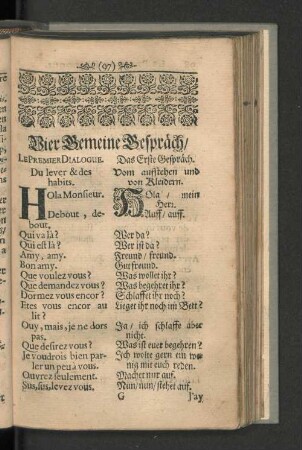 (97)
Vier Gemeine Gespräch/
LE PREMIER DIALOGUE.
Du lever & des
habits.
HOla Monsieur.
Debout, de-
bout,
Qui va là?
Qui est là?
Amy, amy.
Bon amy.
Que voulez vous?
Que demandez vous?
Dormez vous encor?
Etes vous encor au
lit?
Ouy, mais, je ne dors
pas.
Que desirez vous?
Je voudrois bien par-
ler un peu à vous.
Ouvrez seulement.
Sus, sus, levez vous.
Das Erste Gespräch.
Vom auffstehen und
von Kleidern.
HOla / mein
Herr.
Auff/ auff.
Wer da?
Wer ist da?
Freund/ freund.
Gut freund.
Was wollet ihr?
Was begehret ihr?
Schlaffet ihr noch?
Lieget ihr noch im Bett?
Ja/ ich schlaffe aber
nicht.
Was ist euer begehren?
Ich wolte gern ein we-
nig mit euch reden.
Machet nur auf.
Nun/nun/stehet auf.
G J'ay